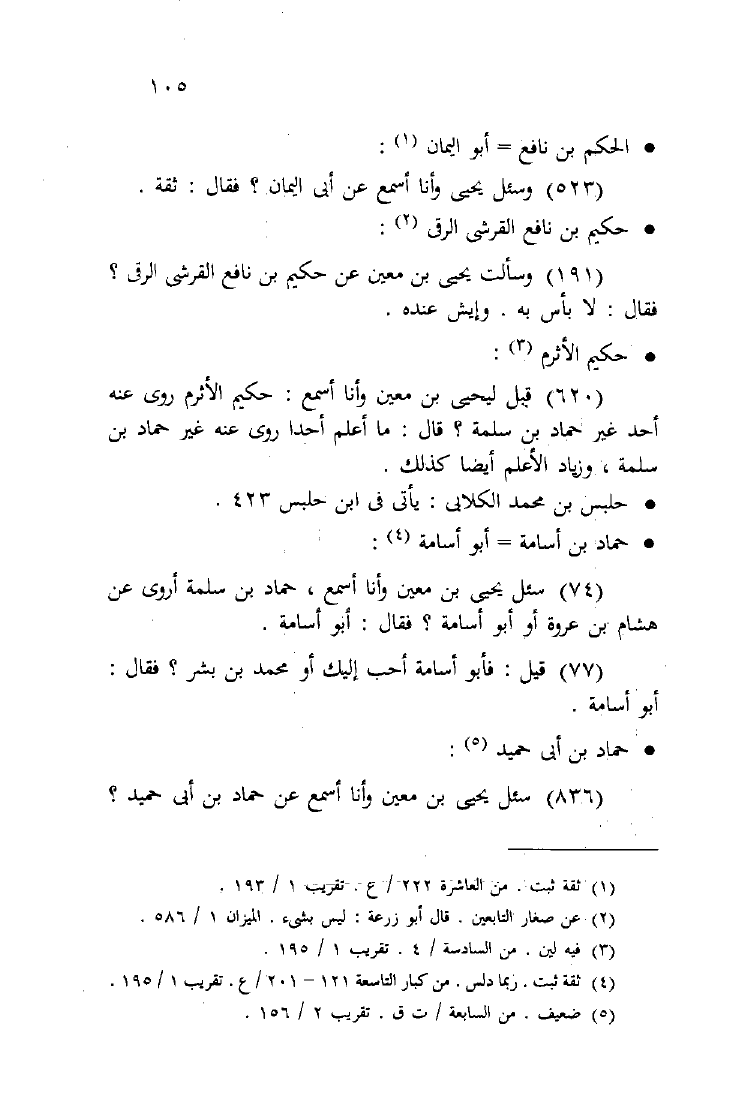 ١٠٥
● الحكم بن نافع = أبو اليمان (١) :
(٥٢٣) وسئل يحيى وأنا أسمع عن أبى اليمان ؟ فقال : ثقة .
● حكيم بن نافع القرشى الرقى (٢) :
(١٩١) وسألت يحيى بن معين عن حكيم بن نافع القرشى الرقى ؟
فقال : لا بأس به . وإيش عنده .
● حكيم الأثرم (٣) :
(٦٢٠) قيل ليحيى بن معين وأنا أسمع : حكيم الأثرم روى عنه
أحد غير حماد بن سلمة ؟ قال : ما أعلم أحدا روى عنه غير حماد بن
سلمة ، وزياد الأعلم أيضا كذلك .
● حلبس بن محمد الكلابى : يأتى فى ابن حلبس ٤٢٣ .
● حماد بن أسامة = أبو أسامة (٤) :
(٧٤) سئل يحيى بن معين وأنا أسمع ، حماد بن سلمة أروى عن
هشام بن عروة أو أبو أسامة ؟ فقال : أبو أسامة .
(٧٧) قيل : فأبو أسامة أحب إليك أو محمد بن بشر ؟ فقال :
أبو أسامة .
● حماد بن أبى حميد (٥) :
(٨٣٦) سئل يحيى بن معين وأنا أسمع عن حماد بن أبى حميد ؟
(١) ثقة ثبت . من العاشرة ٢٢٢ / ع . تقريب ١ / ١٩٣ .
(٢) عن صغار التابعين . قال أبو زرعة : ليس بشىء . الميزان ١ / ٥٨٦ .
(٣) فيه لين . من السادسة / ٤ . تقريب ١ / ١٩٥ .
(٤) ثقة ثبت . ربما دلس . من كبار التاسعة ١٢١ – ٢٠١ / ع . تقريب ١ / ١٩٥ .
(٥) ضعيف . من السابعة / ت ق . تقريب ٢ / ١٥٦ .